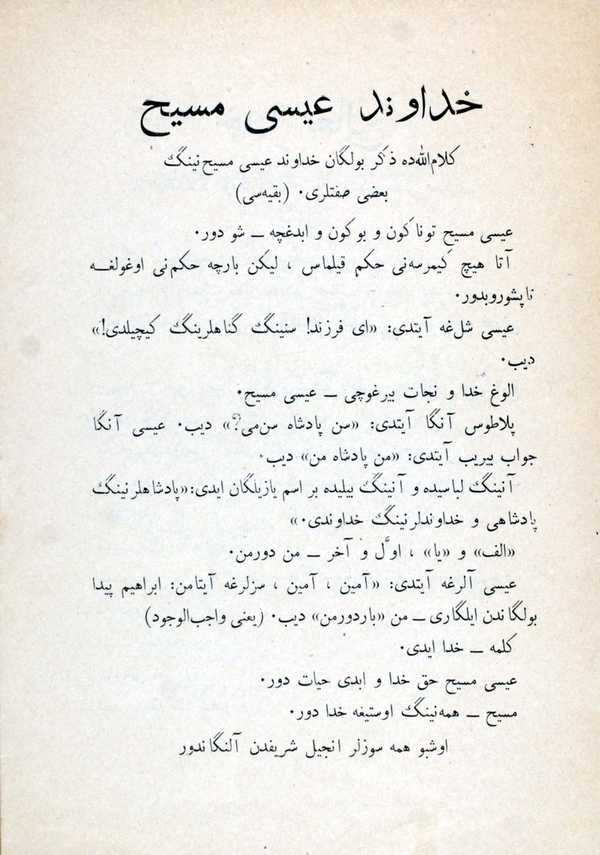 خداوند عیسی مسیح
کلام‌الله‌ده ذکر بولگان خداوند عیسی مسیح‌نینگ
بعضی صفتلری. (بقیه‌سی)
عیسی مسیح توناکون و بوکون و ابدغچه — شو دور.
آتا هیچ کیمرسه‌نی حکم قیلماس ، لیکن بارچه حکم‌نی اوغولغه
تاپشوروبدور.
عیسی شل‌غه آیتدی: «ای فرزند! سنینگ گناهلرینگ کیچیلدی!»
دیب.
الوغ خدا و نجات بیرغوچی — عیسی مسیح.
پلاطوس آنگا آیتدی: «سن پادشاه سن‌می؟» دیب. عیسی آنگا
جواب بیریب آیتدی: «من پادشاه من» دیب.
آنینگ لباسیده و آنینگ بیلیده بر اسم یازیلگان ایدی: «پادشاهلرنینگ
پادشاهی و خداوندلرنینگ خداوندی.»
«الف» و «یا» ، اوّل و آخر — من دورمن.
عیسی آلرغه آیتدی: «آمین ، آمین ، سزلرغه آیتامن: ابراهیم پیدا
بولگاندن ایلگاری — من «باردورمن» دیب. (یعنی واجب‌الوجود)
کلمه — خدا ایدی.
عیسی مسیح حق خدا و ابدی حیات دور.
مسیح — همه‌نینگ اوستیغه خدا دور.
اوشبو همه سوزلر انجیل شریفدن آلنگاندور